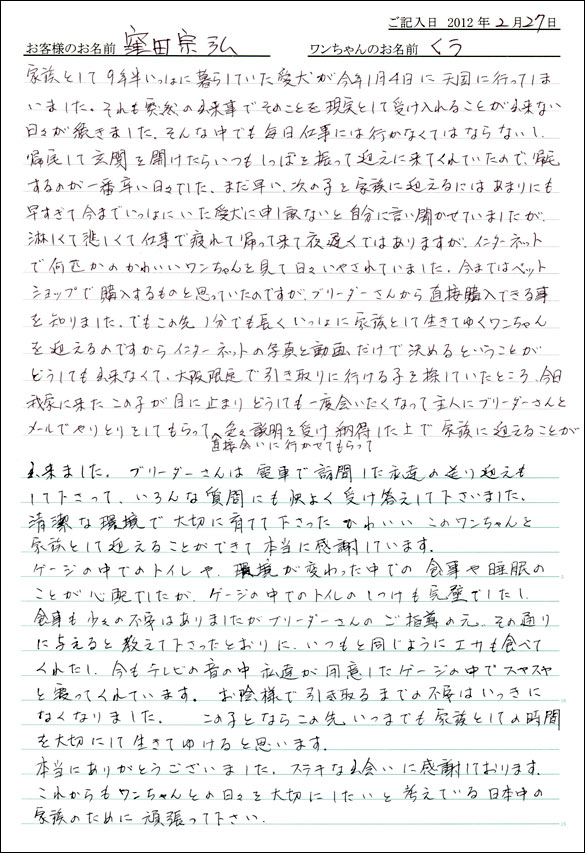 ご記入日 2012年2月27日
お客様のお名前 窪田宗弘 ワンちゃんのお名前 くう
家族として9年半いっしょに暮らしていた愛犬が今年1月4日に天国に行ってしま
いました。それも突然の出来事でそのことを現実として受け入れることが出来ない
日々が続きました。そんな中でも毎日仕事には行かなくてはならないし、
帰宅して玄関を開けたらいつもしっぽを振って迎えに来てくれていたので、帰宅
するのが一番辛い日々でした。まだ早い、次の子を家族に迎えるにはあまりにも
早すぎて今までいっしょにいた愛犬に申し訳ないと自分に言い聞かせていましたが、
淋しくて悲しくて仕事で疲れて帰って来て夜遅くではありますが、インターネット
で何匹かのかわいいワンちゃんを見て日々いやされていました。今まではペット
ショップで購入するものと思っていたのですが、ブリーダーさんから直接購入できる事
を知りました。でもこの先1分でも長くいっしょに家族として生きてゆくワンちゃん
を迎えるのですからインターネットの写真と動画だけで決めるということが
どうしても出来なくて、大阪限定で引き取りに行ける子を探していたところ、今日
我家に来たこの子が目に止まりどうしても一度会いたくなって主人にブリーダーさんと
メールでやりとりをしてもらって、直接会いに行かせてもらって色々説明を受け納得した上で家族に迎えることが
出来ました。ブリーダーさんは電車で訪問した私達の送り迎えも
して下さって、いろんな質問にも快よく受け答えして下さいました。
清潔な環境で大切に育てて下さったかわいいこのワンちゃんを
家族として迎えることができて本当に感謝しています。
ゲージの中でのトイレや、環境が変わった中での食事や睡眠の
ことが心配でしたが、ゲージの中でのトイレのしつけも完璧でしたし、
食事も少々の不安はありましたがブリーダーさんのご指導の元、その通り
に与えると教えて下さったとおりに、いつもと同じようにエサも食べて
くれたし、今もテレビの音の中私達が用意したゲージの中でスヤスヤ
と寝ってくれています。お陰様で引き取るまでの不安はいっきに
なくなりました。 この子とならこの先いつまでも家族としての時間
を大切にして生きてゆけると思います。
本当にありがとうございました。ステキな出会いに感謝しております。
これからもワンちゃんとの日々を大切にしたいと考えている日本中の
家族のために頑張って下さい。